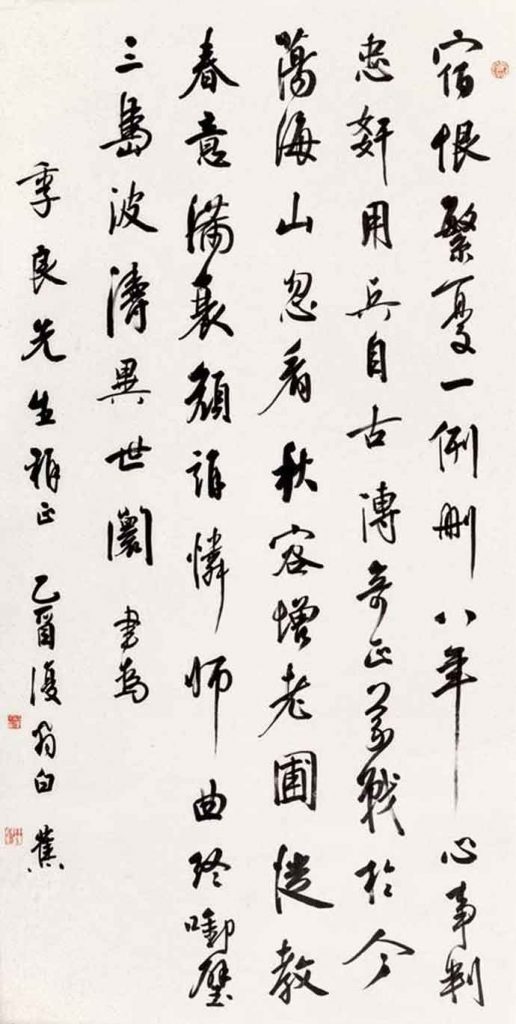 宿恨繁憂一例刪八年心事判
忠奸用兵自古傳奇正義戰於今
蕩海山忽看秋容增老圃從教
春意滿衰顏誰憐師曲終啣璧
三島波濤異世闤書為
季良先生雅正乙酉復翁白蕉